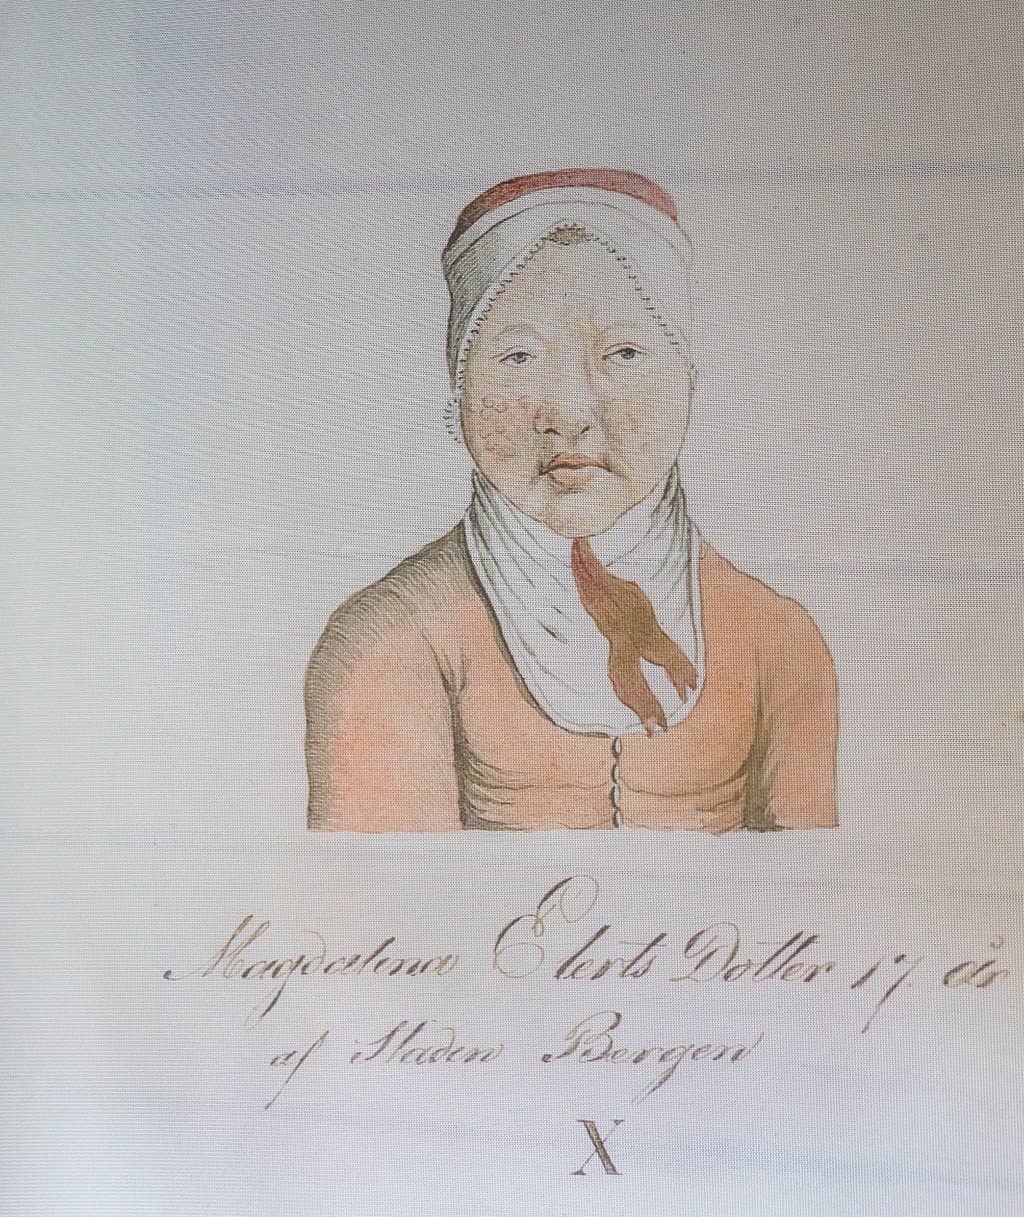 Magdalena Elerts Dotter 17 år
af Staden Bergen
X